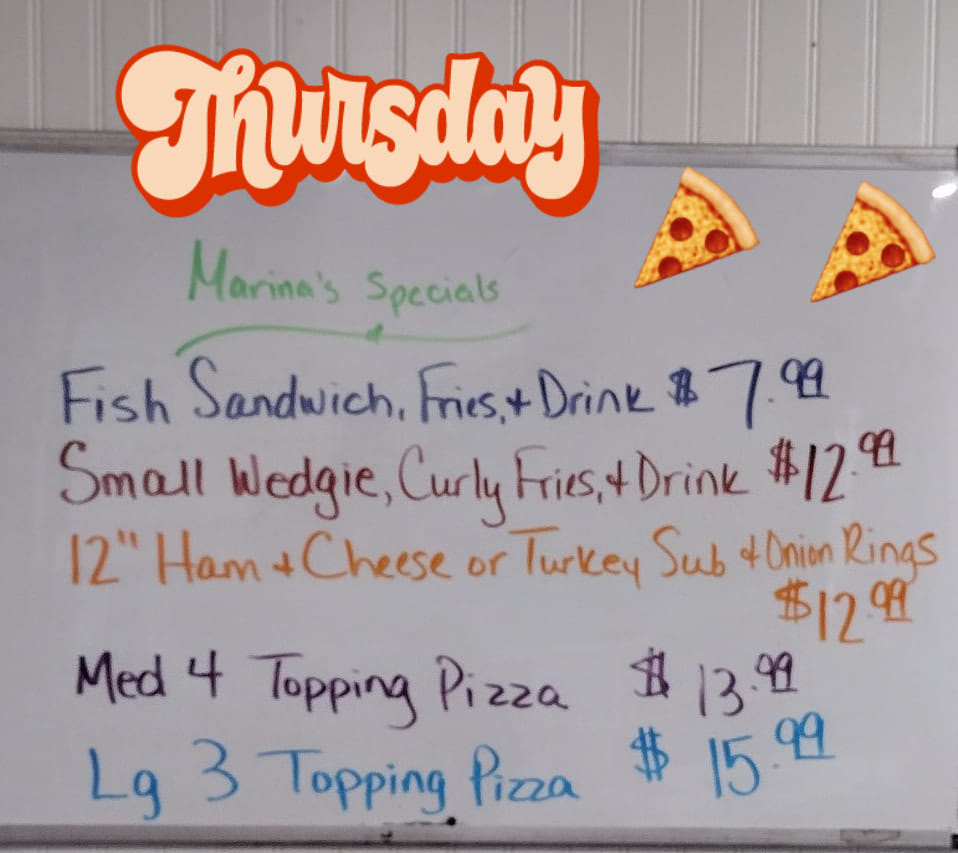 Thursday
Marina's Specials
Fish Sandwich, Fries, + Drink $7.99
Small Wedgie, Curly Fries, + Drink $12.99
12" Ham + Cheese or Turkey Sub + Onion Rings
$12.99
Med 4 Topping Pizza $13.99
Lg 3 Topping Pizza $15.99